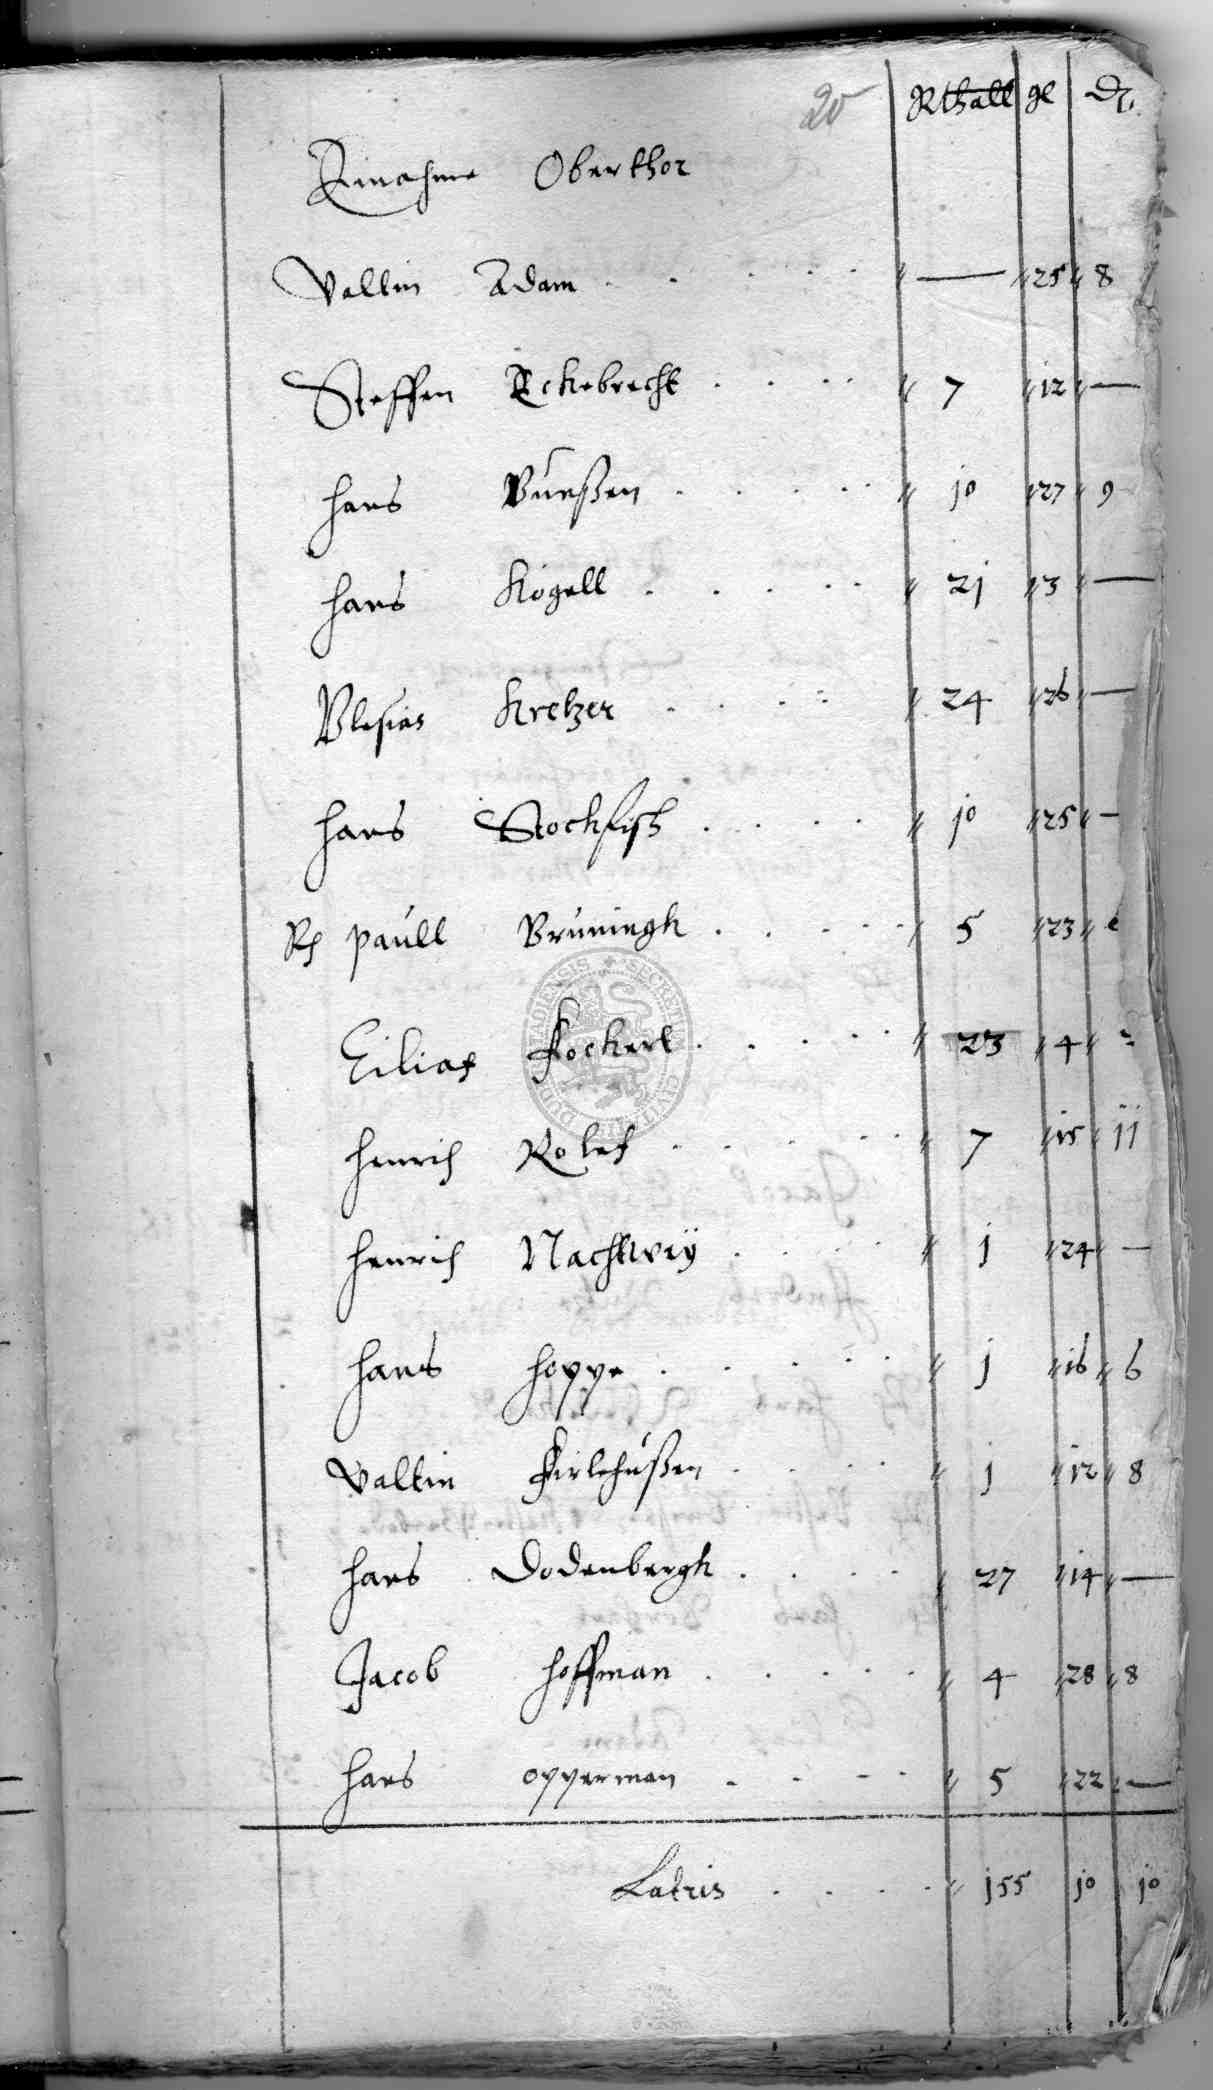 20 Rthall gl d.
Einahme Oberthor
Valtin Adam . . . . . " — " 25 " 8
Steffen Eckebrecht . . . . " 7 " 12 " —
Hans Bürßen . . . . . " jo " 27 " 9
Hans Kögell . . . . . " 2j " 3 " —
Blesias Kretzer . . . . . " 24 " 26 " —
Hans Stockfisch . . . . . " jo " 25 " —
Rh Paull Brüningh . . . . . " 5 " 23 "
Eilias Fockert . . . . " 23 " 4 "
Henrich Rolef . . . . . " 7 " 15 " jj
Henrich Nachtweÿ . . . . " j " 24 " —
Hans Hoppe . . . . . " j " 16 " 6
Valtin Firlehußen . . . . " j " 12 " 8
Hans Dodenbergk . . . . " 27 " 14 " —
Jacob Hoffman . . . . . " 4 " 28 " 8
Hans Opperman . . . . " 5 " 22 " —
Latris . . . . " j55 jo jo